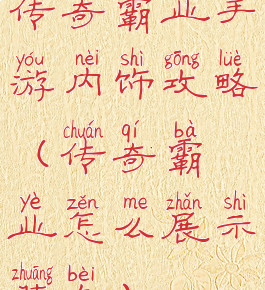 传奇霸业手
yóu nèi shì gōng lüè
游内饰攻略
chuán qí bà
(传奇霸
yè zěn me zhǎn shì
业怎么展示
zhuāng bèi